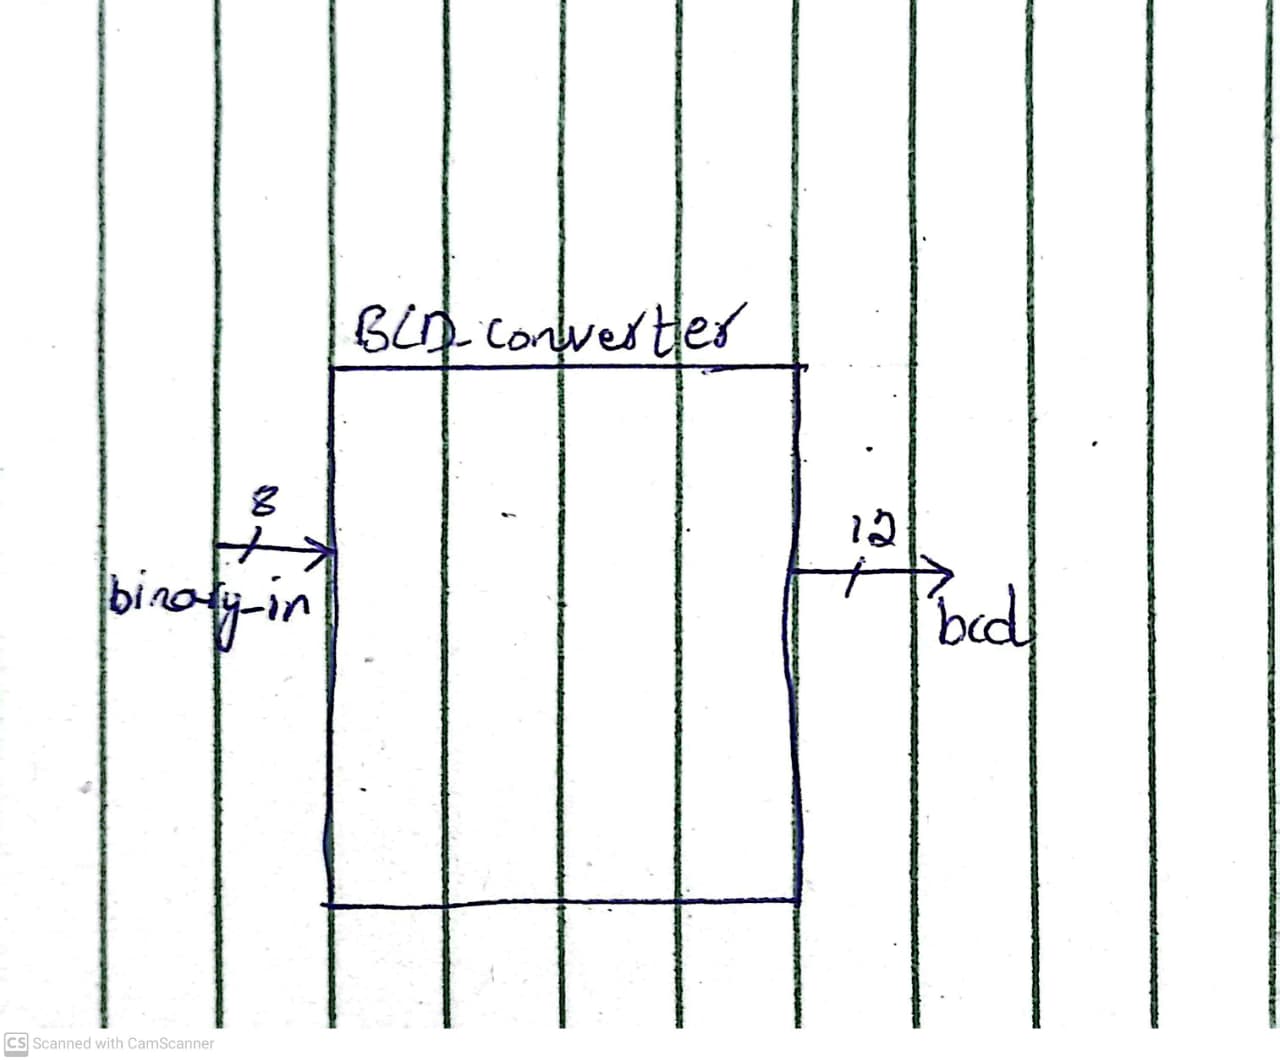 BCD_converter
8
binary_in
12
bcd
CS Scanned with CamScanner